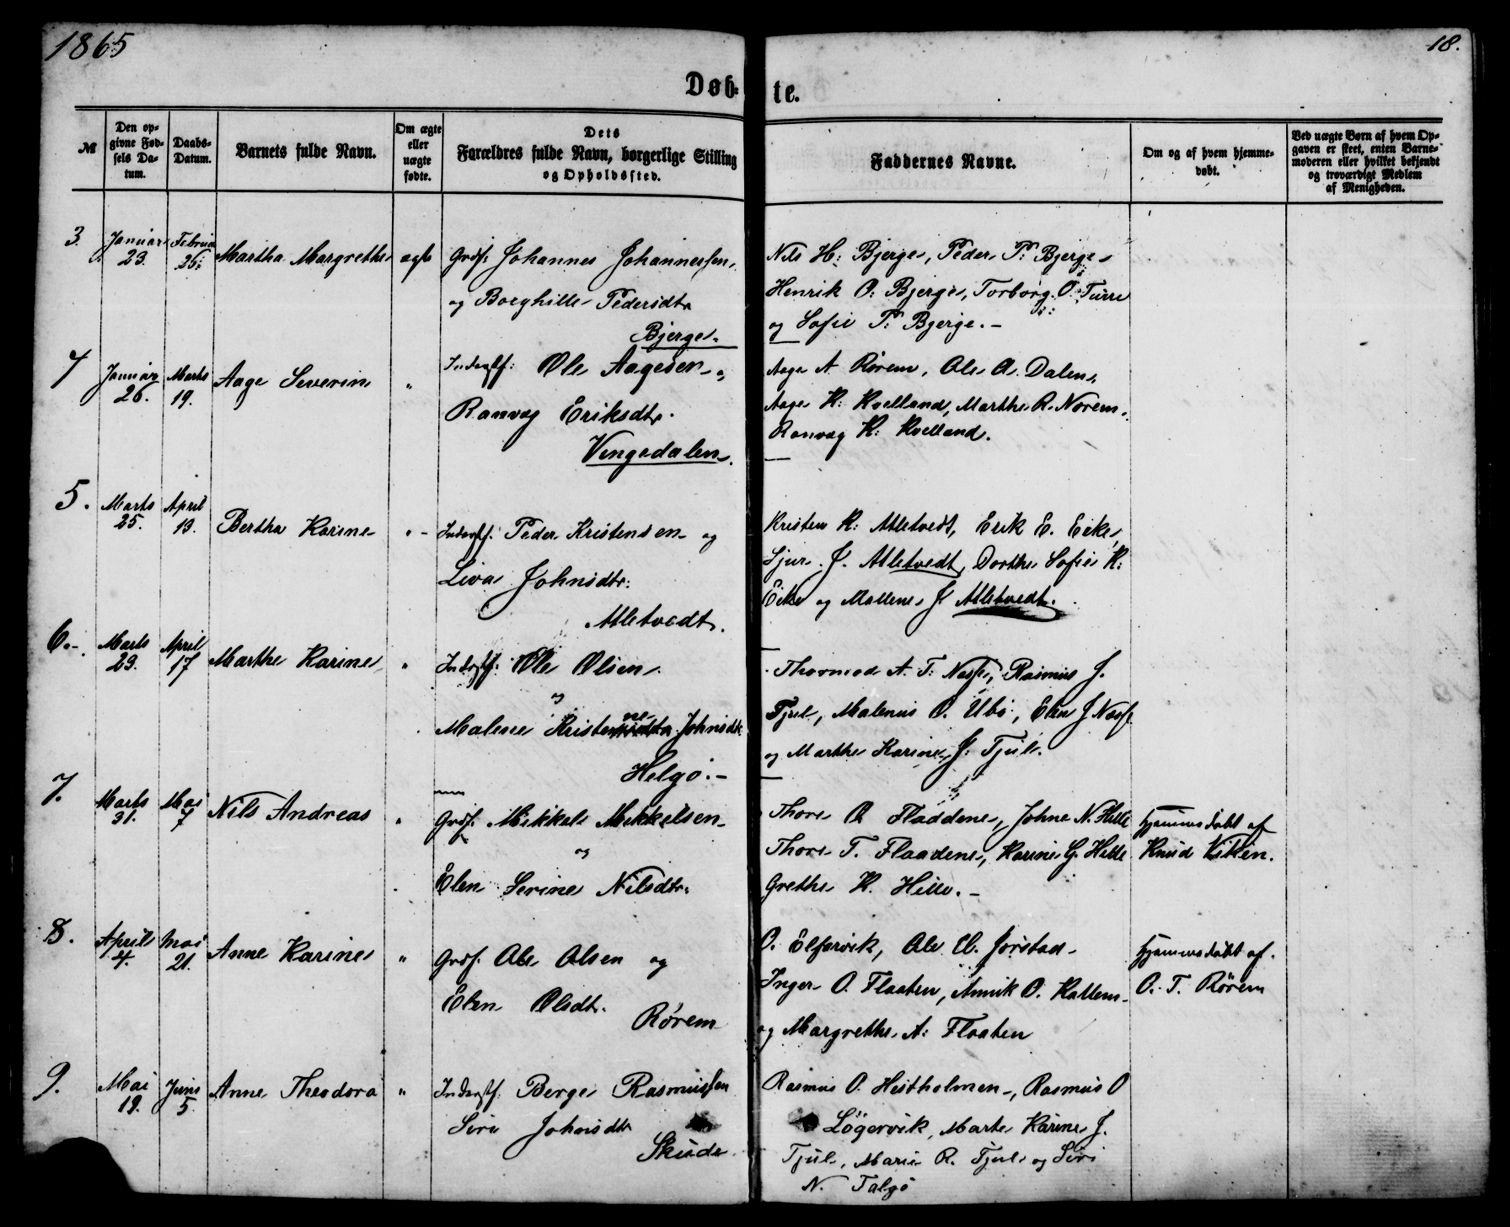 1865
18.
Døb-te.
№
Den opgivne Fødsels Datum.
Daabs-Datum.
Barnets fulde Navn.
Om ægte eller uægte fødte.
Dets Forældres fulde Navn, borgerlige Stilling og Opholdssted.
Faddernes Navne.
Om og af hvem hjemmedøbt.
Ved uægte Børn af hvem Opgaven er skeet, enten Barnemoderen eller hvilket bekjendt og troværdigt Medlem af Menigheden.
3. Januar 23. Februar 26. Martha Margrethe ægte Grdf. Johannes Johannessen
og Borghille Pedersdtr
Bjerge.
Nils H: Bjerge, Peder P: Bjerge
Henrik O: Bjerge, Torborg O: Turre
og Sofie P: Bjerge. -
Januar 26. Marts 19. Aage Severin " Inderstf: Ole Aagesen
Ranvog Eriksdtr.
Vingedalen
Aage A Rørem, Ole A. Dalen,
Aage K: Kvelland, Marthe R. Norem,
Ranvog K: Kvelland.
5. Marts 25. April 13. Bertha Karine " Inderstf. Peder Kristensen og
Liva Johnsdtr:
Atletvedt.
Kristen K: Atletvedt, Erik E. Eike,
Sjur J. Atletvedt, Dorthe Sofie K:
Eike og Mallene J Atletvedt.
6. Marts 29. April 17 Marthe Karine " Inderstf: Ole Olsen
og
Malene Johnsdtr
Helgø. -
Thormod A. T: Næss, Rasmus J.
Tjul, Malenius O. Ubø, Elen J Næss
og Marthe Karine J. Tjul.
7. Marts 31. Mai 7 Nils Andreas " Grdf. Mikkel Mikkelsen
og
Elen Serine Nilsdtr.
Thore O. Fladdene, Johne N. Helle
Thore T. Flaadene, Karine G. Helle
Grethe K. Hille. -
Hjemmedøbt af
Knud
8. April 4. Mai 21. Anne Karine " Grdf. Ole Olsen og
Elen Olsdtr.
Rørem
O. Elfarvik, Ole O. Jørstad
Inger O. Flaaten, Annik O. Kallem
og Margrethe A: Flaaten
Hjemmedøbt af.
O. T. Rørem
9. Mai 19. Juni 5 Anne Theodora " Inderstf. Berge Rasmussen
Siri Johnsdtr
Skude
Rasmus O. Hestholmen, Rasmus O
Løgervik, Marte Karine J.
Tjul, Marie R. Tjul og Siri
N. Talgø